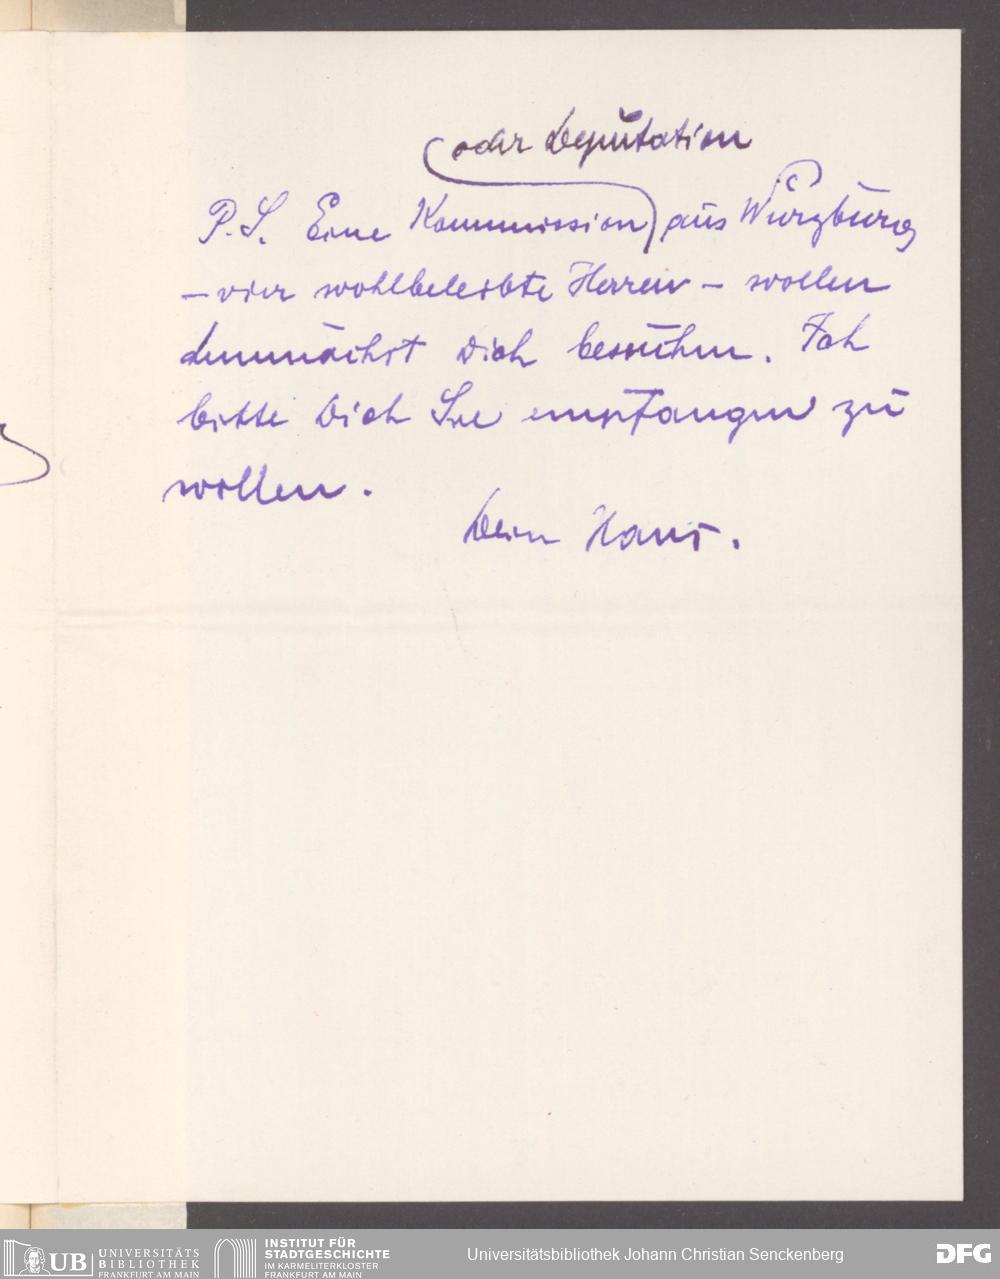 oder Deputation
P.S. Eine Kommission aus Würzburg
– vier wohlbeleibte Herren – wollen
demnächst Dich besuchen. Ich
bitte Dich Sie empfangen zu
wollen.
Dein Hans.
UB UNIVERSITÄTS
BIBLIOTHEK
FRANKFURT AM MAIN
INSTITUT FÜR
STADTGESCHICHTE
IM KARMELITERKLOSTER
FRANKFURT AM MAIN
Universitätsbibliothek Johann Christian Senckenberg
DFG